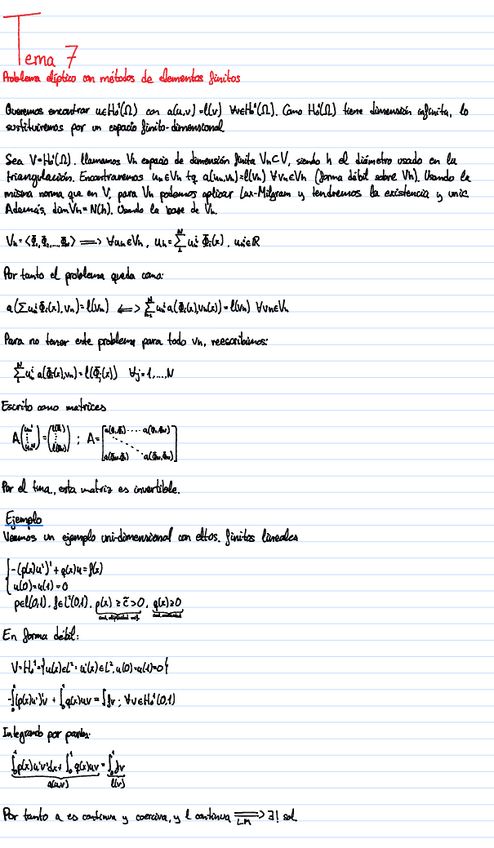 Tema 7
Problema elíptico con métodos de elementos finitos
Queremos encontrar u∈H₀¹(Ω) con a(u,v)=l(v) ∀v∈H₀¹(Ω). Como H₀¹(Ω) tiene dimensión infinita, lo
sustituiremos por un espacio finito-dimensional
Sea V=H₀¹(Ω). Llamamos Vh espacio de dimensión finita Vh⊂V, siendo h el diámetro usado en la
triangulación. Encontraremos uh∈Vh tq a(uh,vh)=l(vh) ∀vh∈Vh (forma débil sobre Vh). Usando la
misma norma que en V, para Vh podemos aplicar Lax-Milgram y tendremos la existencia y unic.
Además, dim Vh = N(h). Usando la base de Vh.
Vh=<Φ₁,Φ₂,...,ΦN> ⟹ ∀uh∈Vh, uh=∑uhⁱ Φi(x), uhⁱ∈ℝ
Por tanto el problema queda como:
a(∑uhⁱΦi(x),vh)=l(vh) ⟺ ∑uhⁱ a(Φi(x),vh(x))=l(vh) ∀vh∈Vh
Para no tener este problema para todo vh, reescribimos:
∑uhⁱ a(Φi(x),vh)=l(Φj(x)) ∀j=1,...,N
Escrito como matrices
A(uh¹ ⋮ uhᴺ)=(l(Φ₁) ⋮ l(ΦN)) ; A=[a(Φ₁,Φ₁) ⋯ a(Φ₁,ΦN) ⋱ a(ΦN,Φ₁) ⋯ a(ΦN,ΦN)]
Por el tma., esta matriz es invertible.
Ejemplo
Veamos un ejemplo uni-dimensional con eltos. finitos lineales
{-(p(x)u')'+q(x)u=f(x)
u(0)=u(1)=0
p∈C(0,1), f∈L²(0,1), p(x)≥c̃>0, q(x)≥0
En forma débil:
V=H₀¹={u(x)∈L²: u'(x)∈L², u(0)=u(1)=0}
-∫₀¹(p(x)u')'v + ∫₀¹q(x)uv=∫fv ; ∀v∈H₀¹(0,1)
Integrando por partes:
∫₀¹p(x)u'v'dx+∫₀¹q(x)uv=∫₀¹fv
a(u,v) l(v)
Por tanto a es continua y coerciva, y l continua ⟹ ∃! sol.
LM